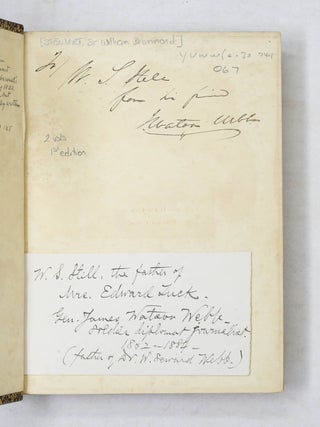 [STEWART, Sir William Drummond]
067
To W. S. Stell
from his friend
J. Watson Webb
2 vols
1st edition
W. S. Stell, the father of
Mrs. Edward Tuck.
Gen. James Watson Webb
Soldier diplomat Journalist.
1802 - 1884 -
(father of Dr. W. Seward Webb.)